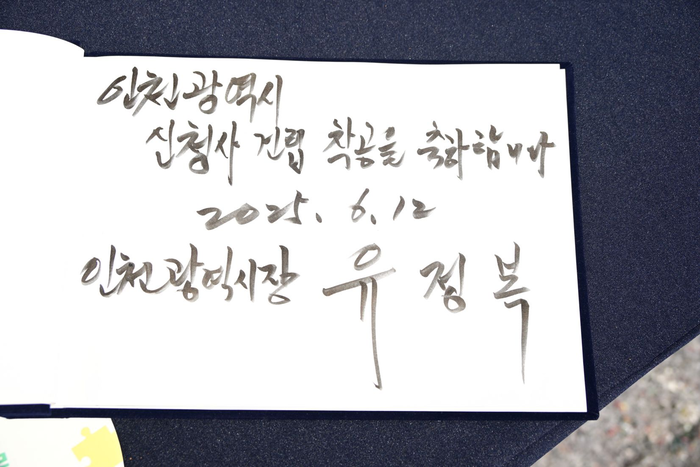 인천광역시
신청사 건립 착공을 축하합니다
2025. 6. 12
인천광역시장 유정복